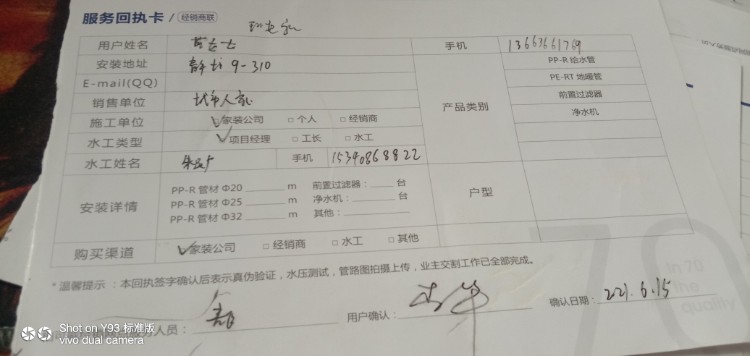 服务回执卡 / 经销商联
用户姓名 手机 13663661769
安装地址 9-310 产品类别 PP-R 给水管
E-mail(QQ) PE-RT 地暖管
销售单位 城市人家 前置过滤器
施工单位 ☑家装公司 □个人 □经销商 净水机
水工类型 ☑项目经理 □工长 □水工
水工姓名 手机 15340868822
安装详情 户型
PP-R 管材 Φ20 m 前置过滤器: 台
PP-R 管材 Φ25 m 净水机: 台
PP-R 管材 Φ32 m 其他:
购买渠道 ☑家装公司 □经销商 □水工 □其他
*温馨提示:本回执签字确认后表示真伪验证,水压测试,管路图拍摄上传,业主交割工作已全部完成。
务人员: 用户确认: 确认日期: 221.6.15
70
in 70
the
quality
Shot on Y93 标准版
vivo dual camera